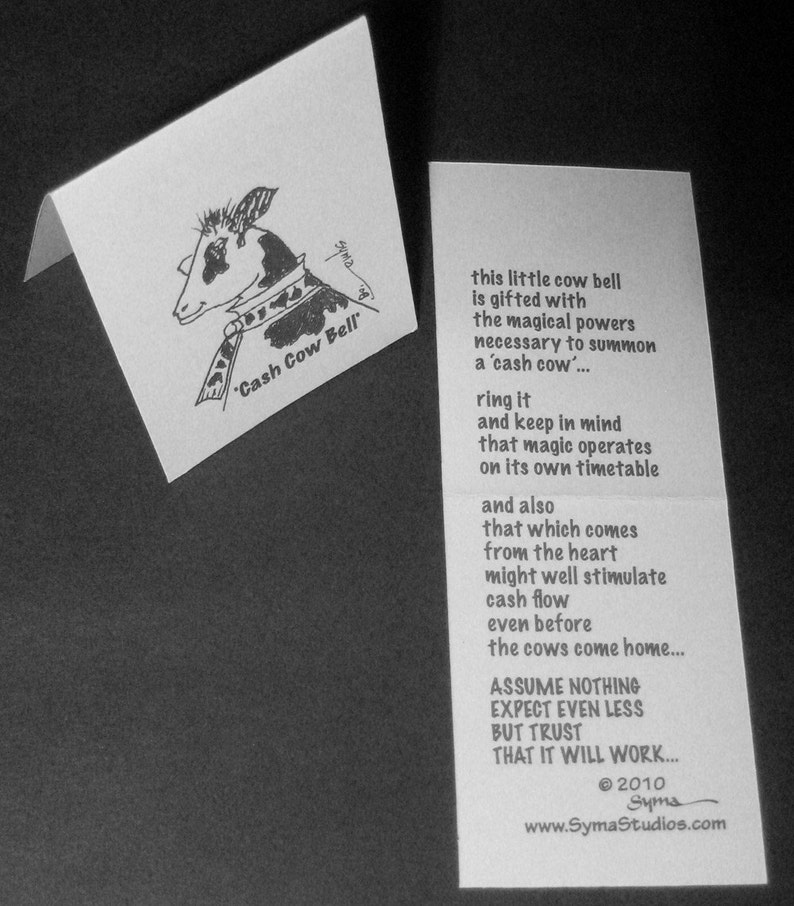 Syma '09
"Cash Cow Bell"
this little cow bell
is gifted with
the magical powers
necessary to summon
a 'cash cow'...
ring it
and keep in mind
that magic operates
on its own timetable
and also
that which comes
from the heart
might well stimulate
cash flow
even before
the cows come home...
ASSUME NOTHING
EXPECT EVEN LESS
BUT TRUST
THAT IT WILL WORK...
© 2010
Syma
www.SymaStudios.com